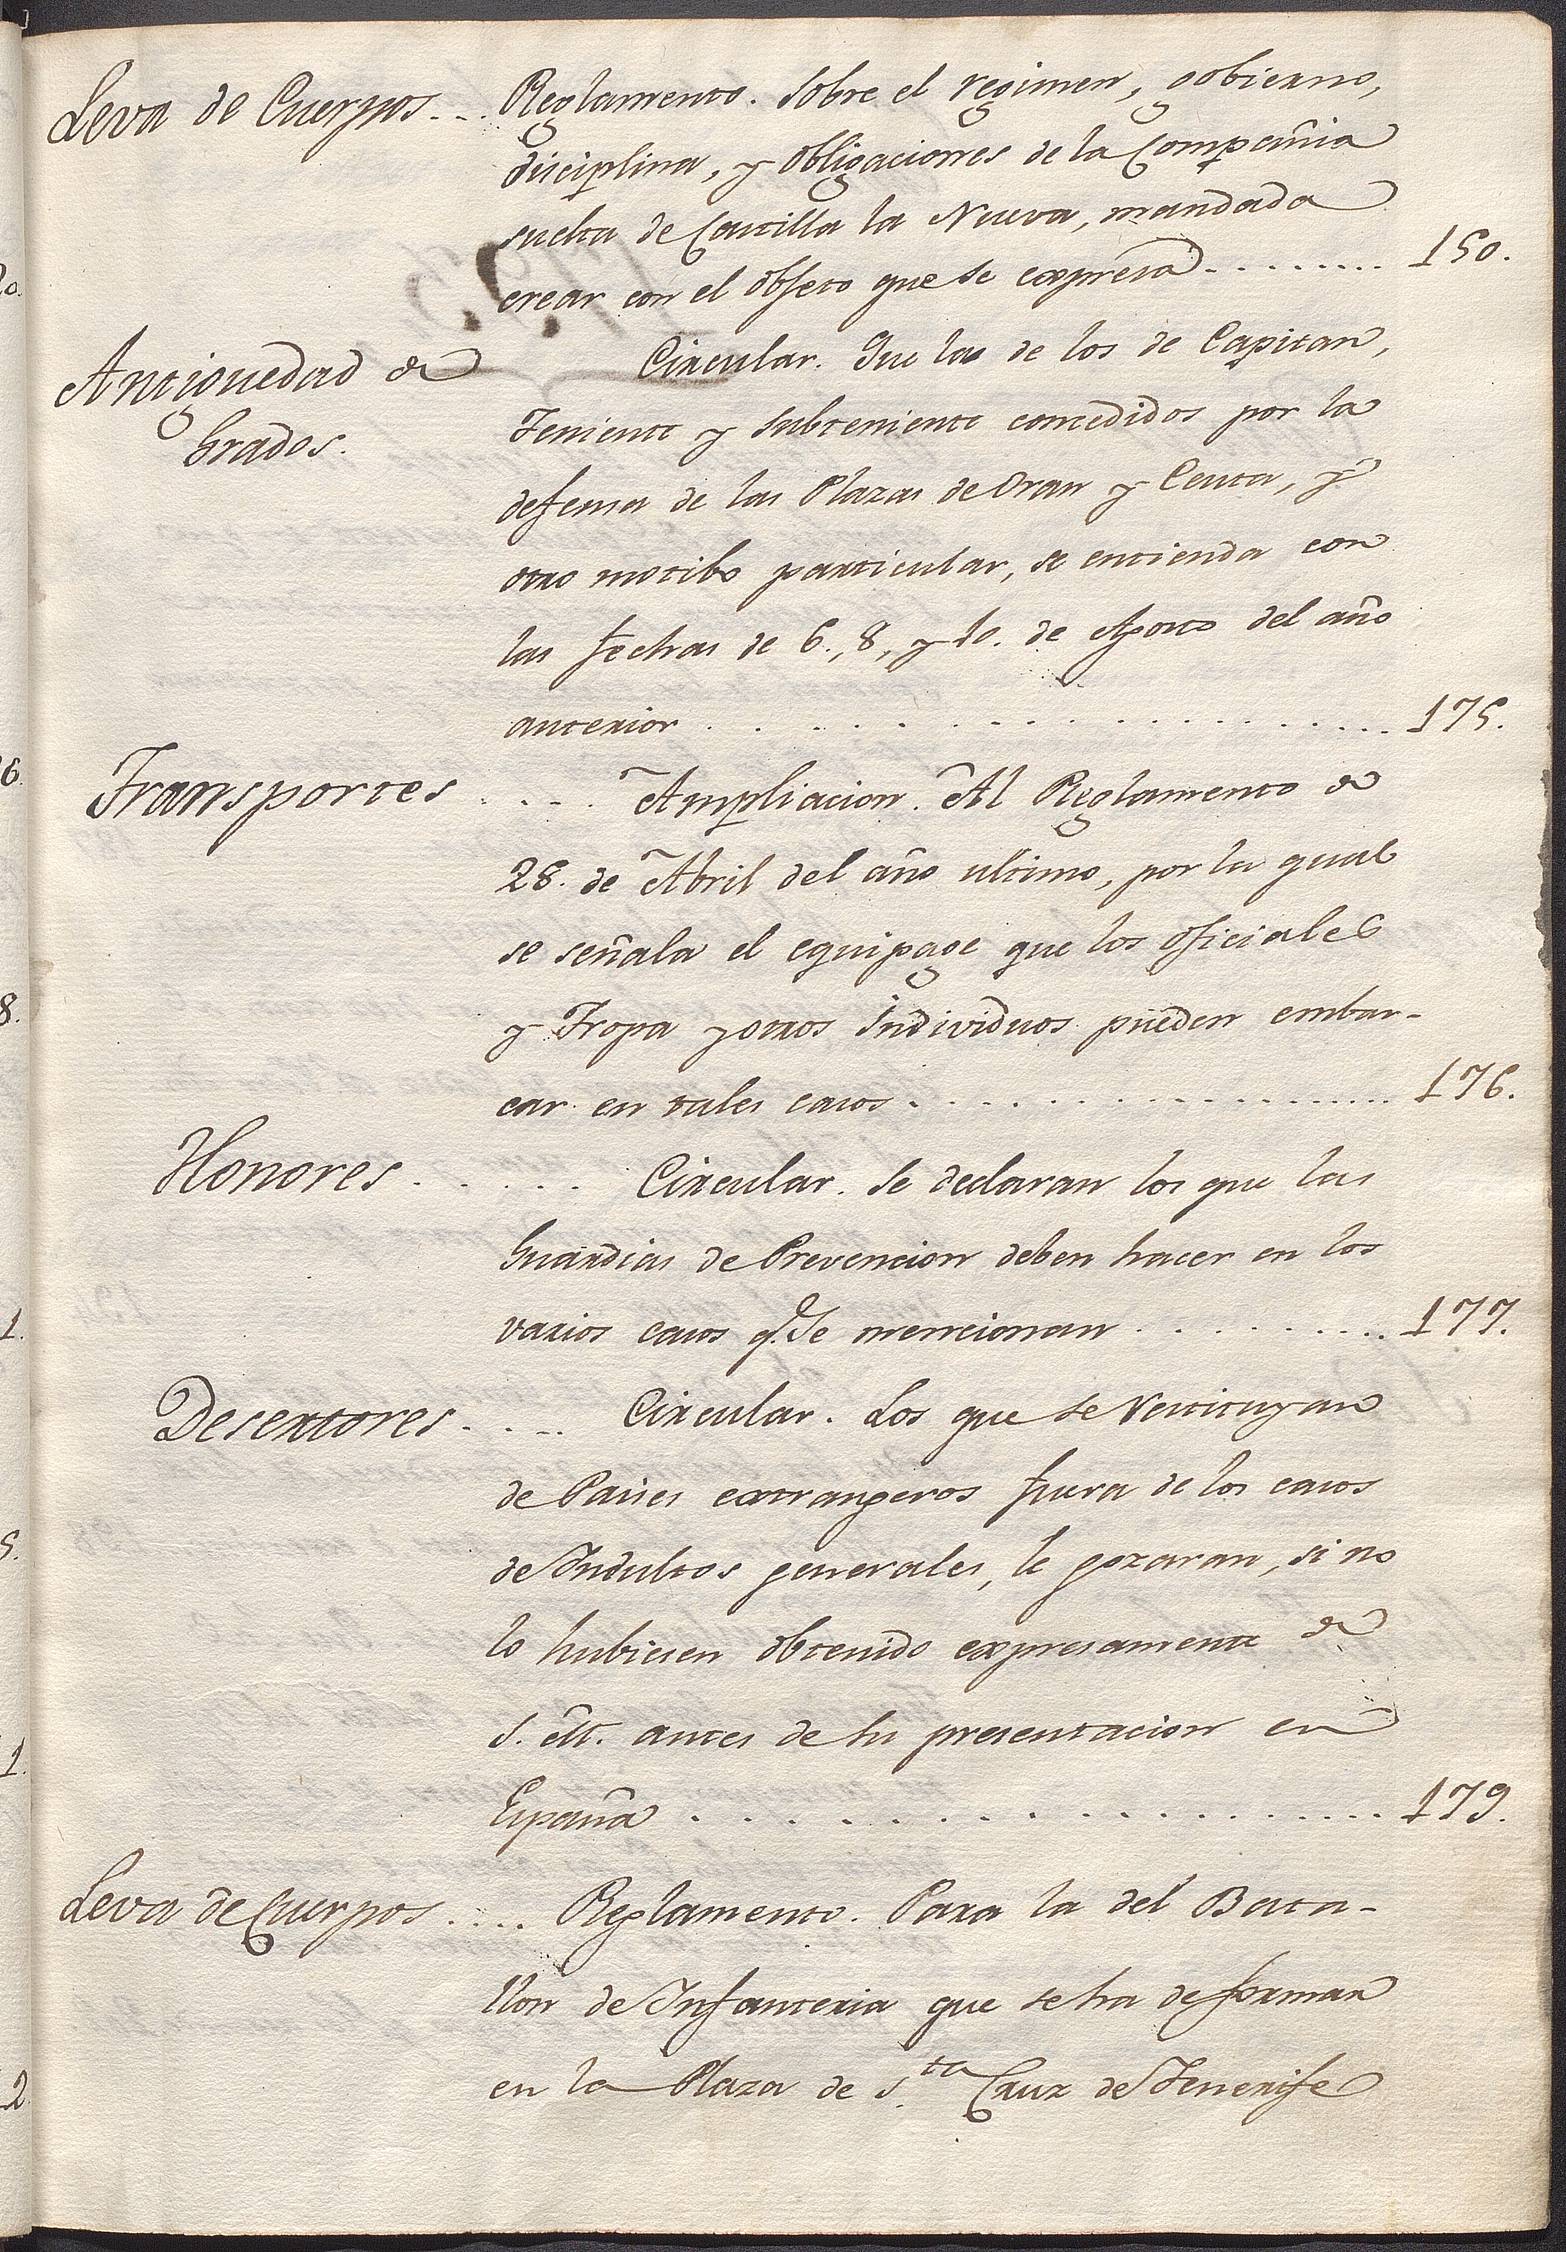 Leva de Cuerpos.... Reglamento. Sobre el regimen, gobierno,
disciplina, y obligaciones de la Compañia
suelta de Castilla la Nueva, mandada
crear con el objeto que se expresa......... 150.
Antiguedad de Circular. Que las de los de Capitan,
Grados.
Teniente y Subteniente concedidos por la
defensa de las Plazas de Oran y Ceuta, y
otro motibo particular, se entienda con
las fechas de 6., 8, y 10. de Agosto del año
anterior................ 175.
Transportes.... Ampliacion. Al Reglamento de
28. de Abril del año ultimo, por la qual
se señala el equipage que los Oficiales
y Tropa y otros Individuos pueden embar-
car en tales casos............... 176.
Honores..... Circular. Se declaran los que las
Guardias de Prevencion deben hacer en los
varios casos q.e Se mencionan......... 177.
Desertores.... Circular. Los que se restituyan
de Paises extrangeros fuera de los casos
de Indultos generales, le gozaran, si no
lo hubiesen obtenido expresamente de
S. M. antes de su presentacion en
España................ 179.
Leva de Cuerpos.... Reglamento. Para la del Bata-
llon de Infanteria que se ha de formar
en la Plaza de S.ta Cruz de Tenerife